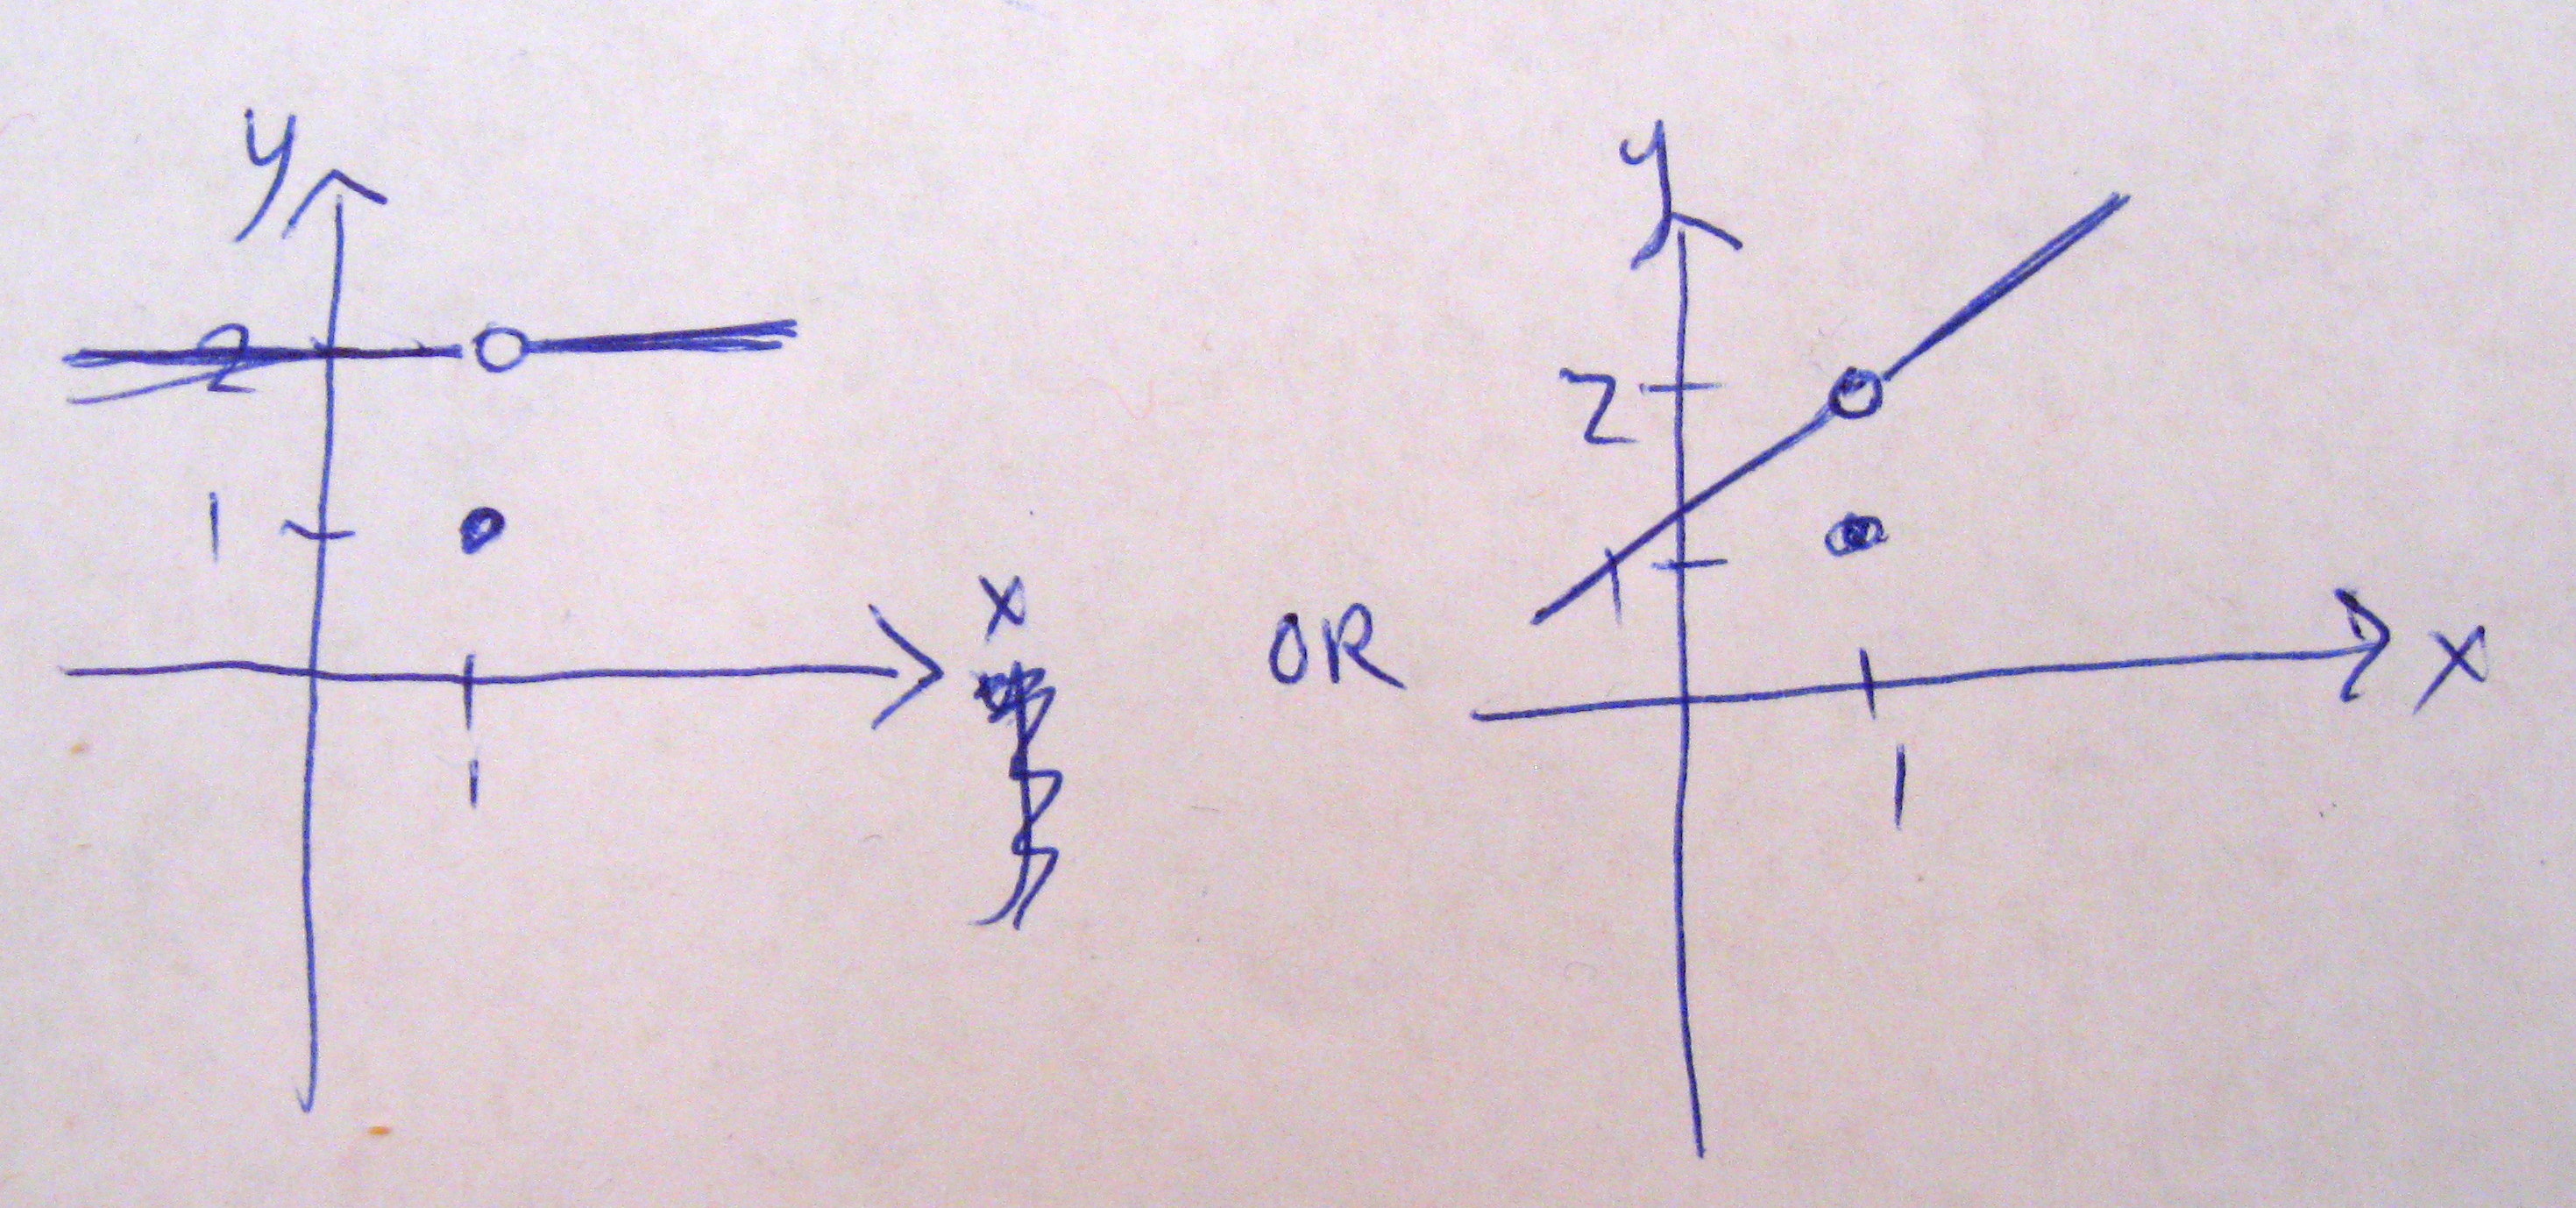 y
2
1
x
1
OR
y
2
1
x
1